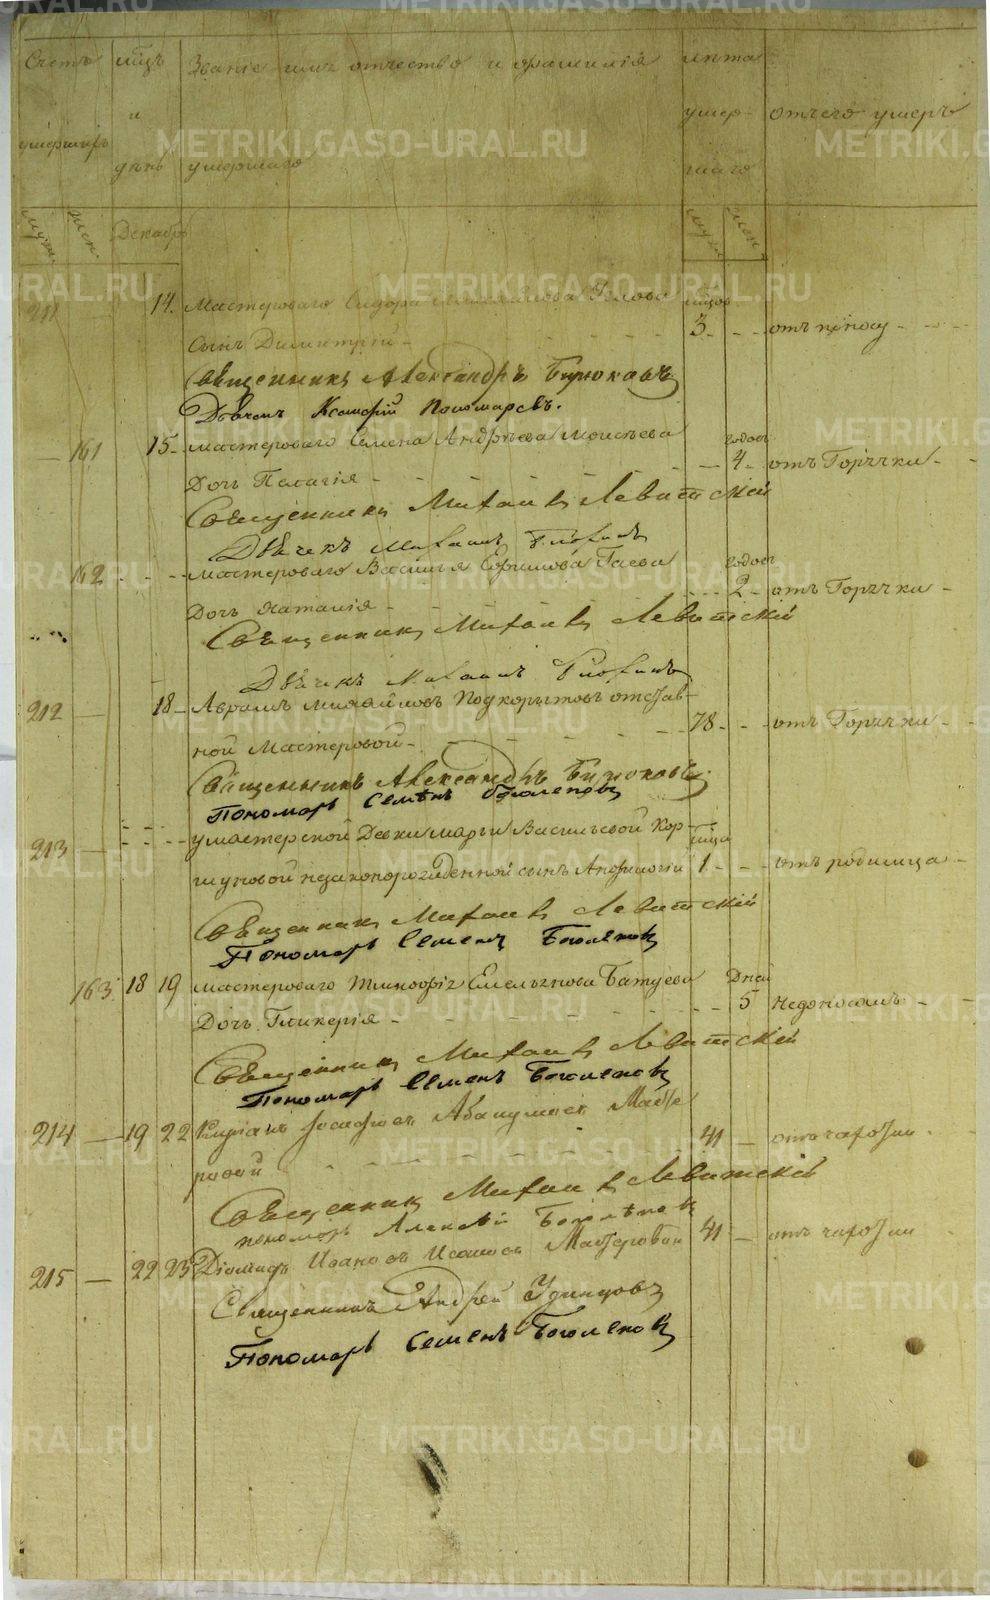 Счетъ мѣцъ Званіе имя отчество и фамилія лѣта
умершихъ и умер- отчего умеръ
день умершаго шаго
муж жен Декабрь муж жен
211 14. Мастероваго Сидора мѣцов
сынъ Димитрій 3 отъ поносу
Священникъ Александръ Бирюковъ
Дьячекъ Пономаревъ.
161 15 мастероваго Семена Андрѣева Моисѣева годов
Дочь Пелагія 4 отъ Горячки
Священникъ Михаилъ Левитскій
Дьячекъ Михаилъ
162 мастероваго Василья Ефимова Гаева годов
Дочь Наталія 2 отъ Горячки
Священникъ Михаилъ Левитскій
Дьячекъ Михаилъ
212 18 Аврамъ Михайловъ Подкорытовъ отстав-
ной Мастеровой 78 отъ Горячки
Священникъ Александръ Бирюковъ
Пономарь Семенъ Боголеповъ
213 умастерской Девки Марьи Васильевой Кор- мѣца
шуновой незаконорожденной сынъ 1 отъ родимца
Священникъ Михаилъ Левитскій
Пономарь Семенъ Боголеповъ
163 18 19 мастероваго Емельянова Батуева Дней
Дочь Гликерія 5 Недоносомъ
Священникъ Михаилъ Левитскій
Пономарь Семенъ Боголеповъ
214 19 22 Абакумовъ Масте
ровой 41 отъ чахотки
Священникъ Михаилъ Левитскій
пономарь Алексѣй Боголѣповъ
215 22 23 Діомидъ Ивановъ Исаковъ Мастеровой 41 отъ чахотки
Священникъ Андрей Удинцовъ
Пономарь Семенъ Боголеповъ
METRIKI.GASO-URAL.RU